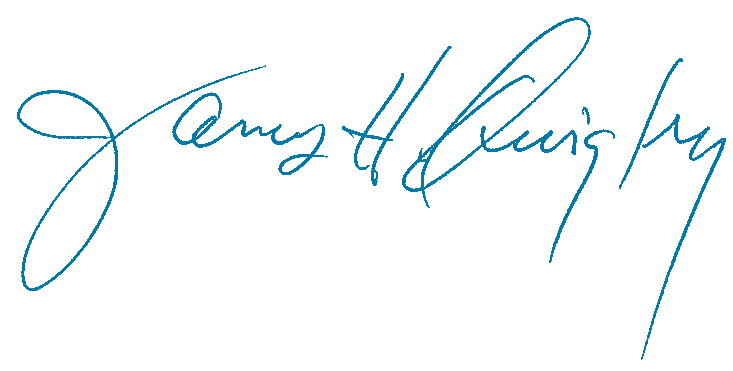 James H Quigley